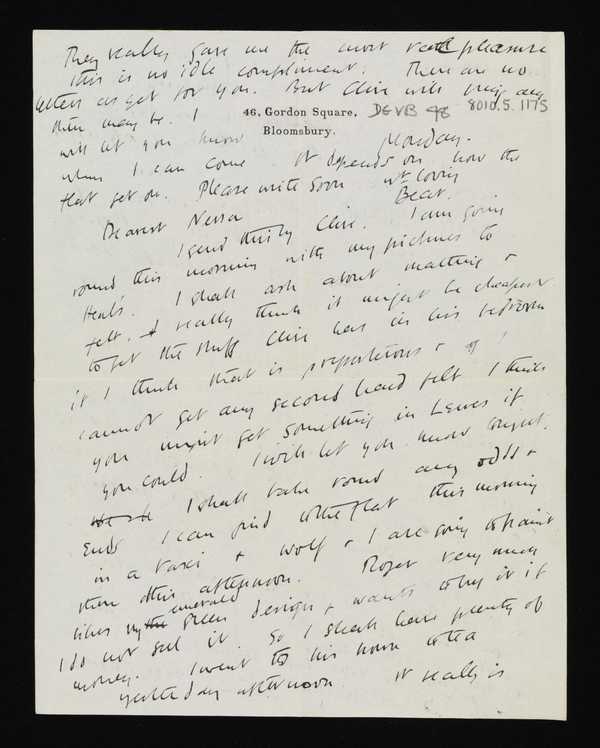 They really gave me the most real pleasure
this is no idle compliment. There are no
letters as get for you. But Clive will bring any
there may be. I
46, Gordon Square,
DG VB 48
8010.5.1175
Bloomsbury.
will let you know
Monday.
when I can come it depends on how the
flat get on. Please write soon yr loving
Bear.
Dearest Nessa
I send this by Clive. I am going
round this morning with my pictures to
Heal's. I shall ask about matting &
felt. I really think it might be cheapest
to get the stuff Clive has in his bedroom
if I think that is preposterous & if I
cannot get any second hand felt I think
you might get something in Lewes if
you could. I will let you know
I shall take round any odds &
Ends I can find to the flat this morning
in a taxi & Wolf & I are going to paint
there this afternoon. Roger very much
likes my emerald green design & wants to buy it if
I do not sell it. So I shall have plenty of
money. I went to his house to tea
yesterday afternoon it really is